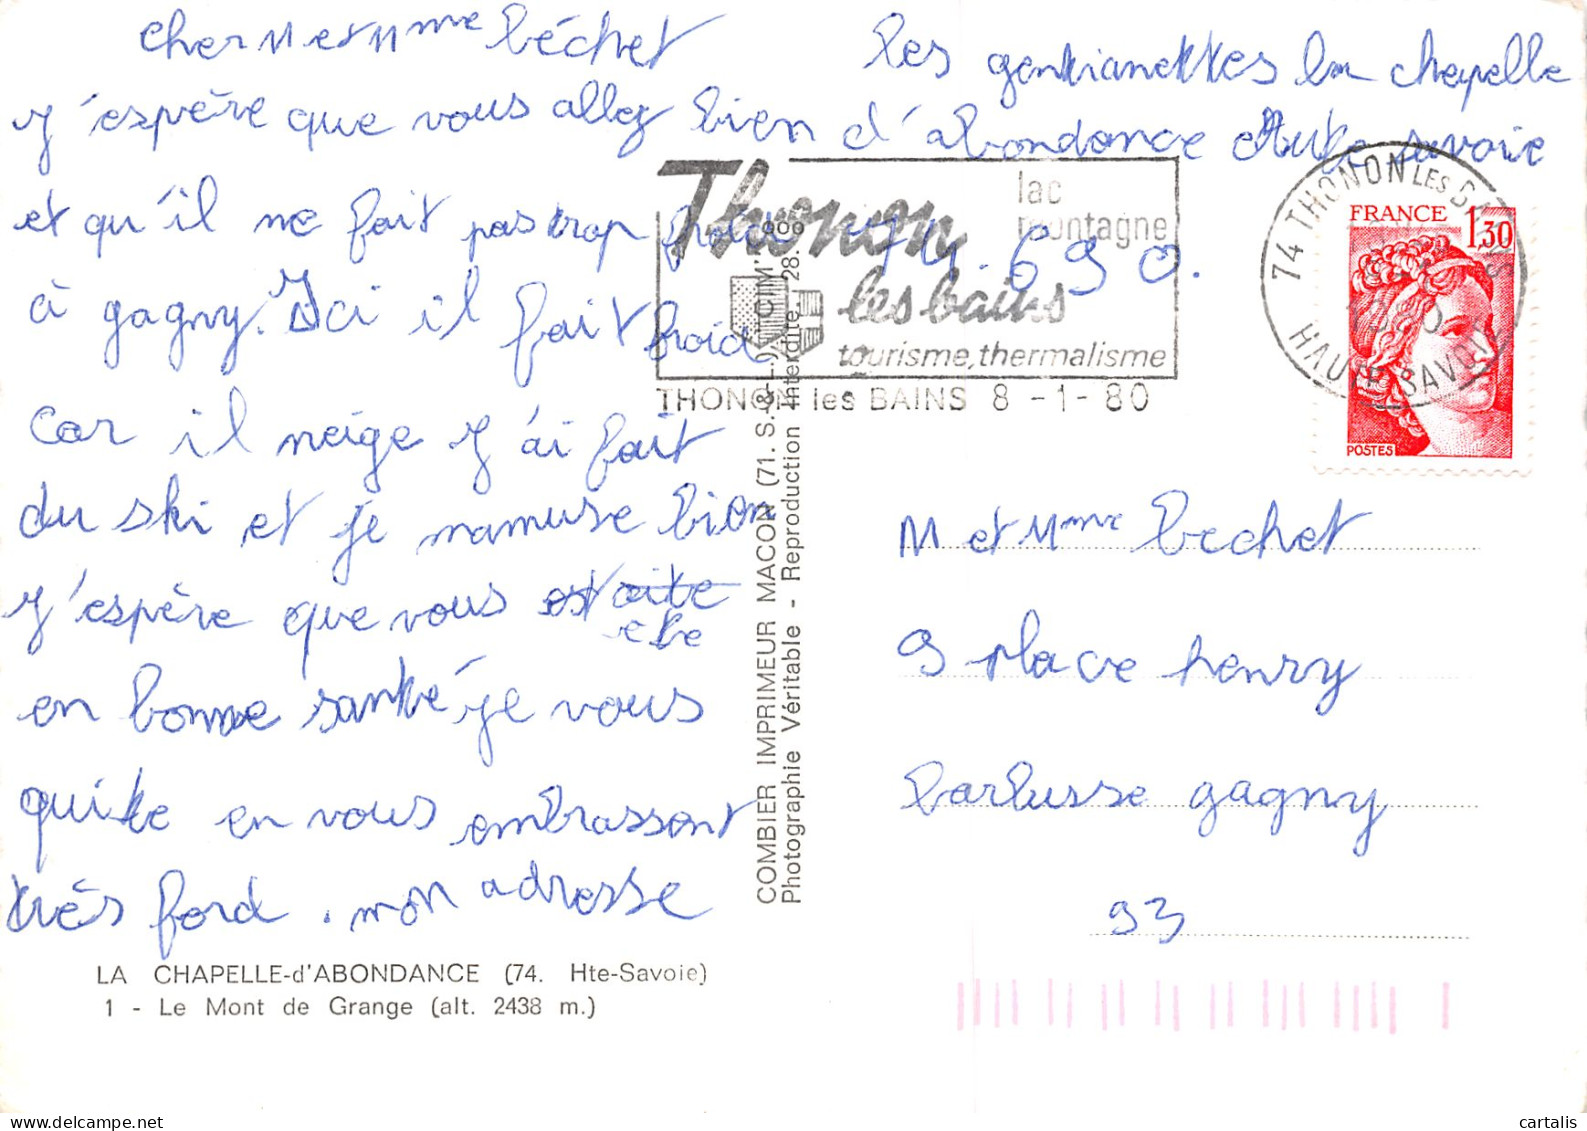 cher M et Mme béchet
J'espère que vous allez bien
et qu'il ne fait pas trop froid
à gagny. Ici il fait froid
car il neige J'ai fait
du ski et je mamuse bien
J'espère que vous
ete
en bonne santé je vous
quitte en vous embrassent
très ford. mon adresse
les gentianettes la chapelle
d'abondance Hute savoie
74.690.
Thonon
les bains
lac
montagne
tourisme, thermalisme
THONON les BAINS 8 -1- 80
74 THONON LES BAINS
HAUTE SAVOIE
FRANCE 1,30
POSTES
COMBIER IMPRIMEUR MACON (71. S.-&-L.) "CIM"
Photographie Véritable - Reproduction Interdite. 28.
M et Mme bechet
9 place henry
barbusse gagny
93
LA CHAPELLE-d'ABONDANCE (74. Hte-Savoie)
1 - Le Mont de Grange (alt. 2438 m.)
cartalis